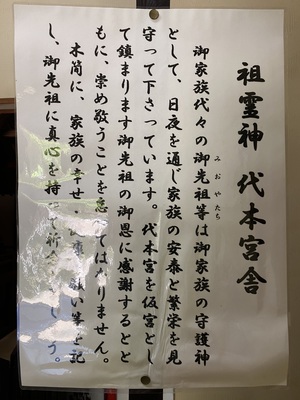 祖霊神 代本宮舎
御家族代々の御先祖等は御家族の守護神
みおやたち
として、日夜を通じ家族の安泰と繁栄を見
守って下さっています。代本宮を仮宮とし
て鎮まります御先祖の御恩に感謝するとと
もに、崇め敬うことを怠ってはなりません。
木筒に、家族の幸せ・願い等を記
し、御先祖に真心を持って祈